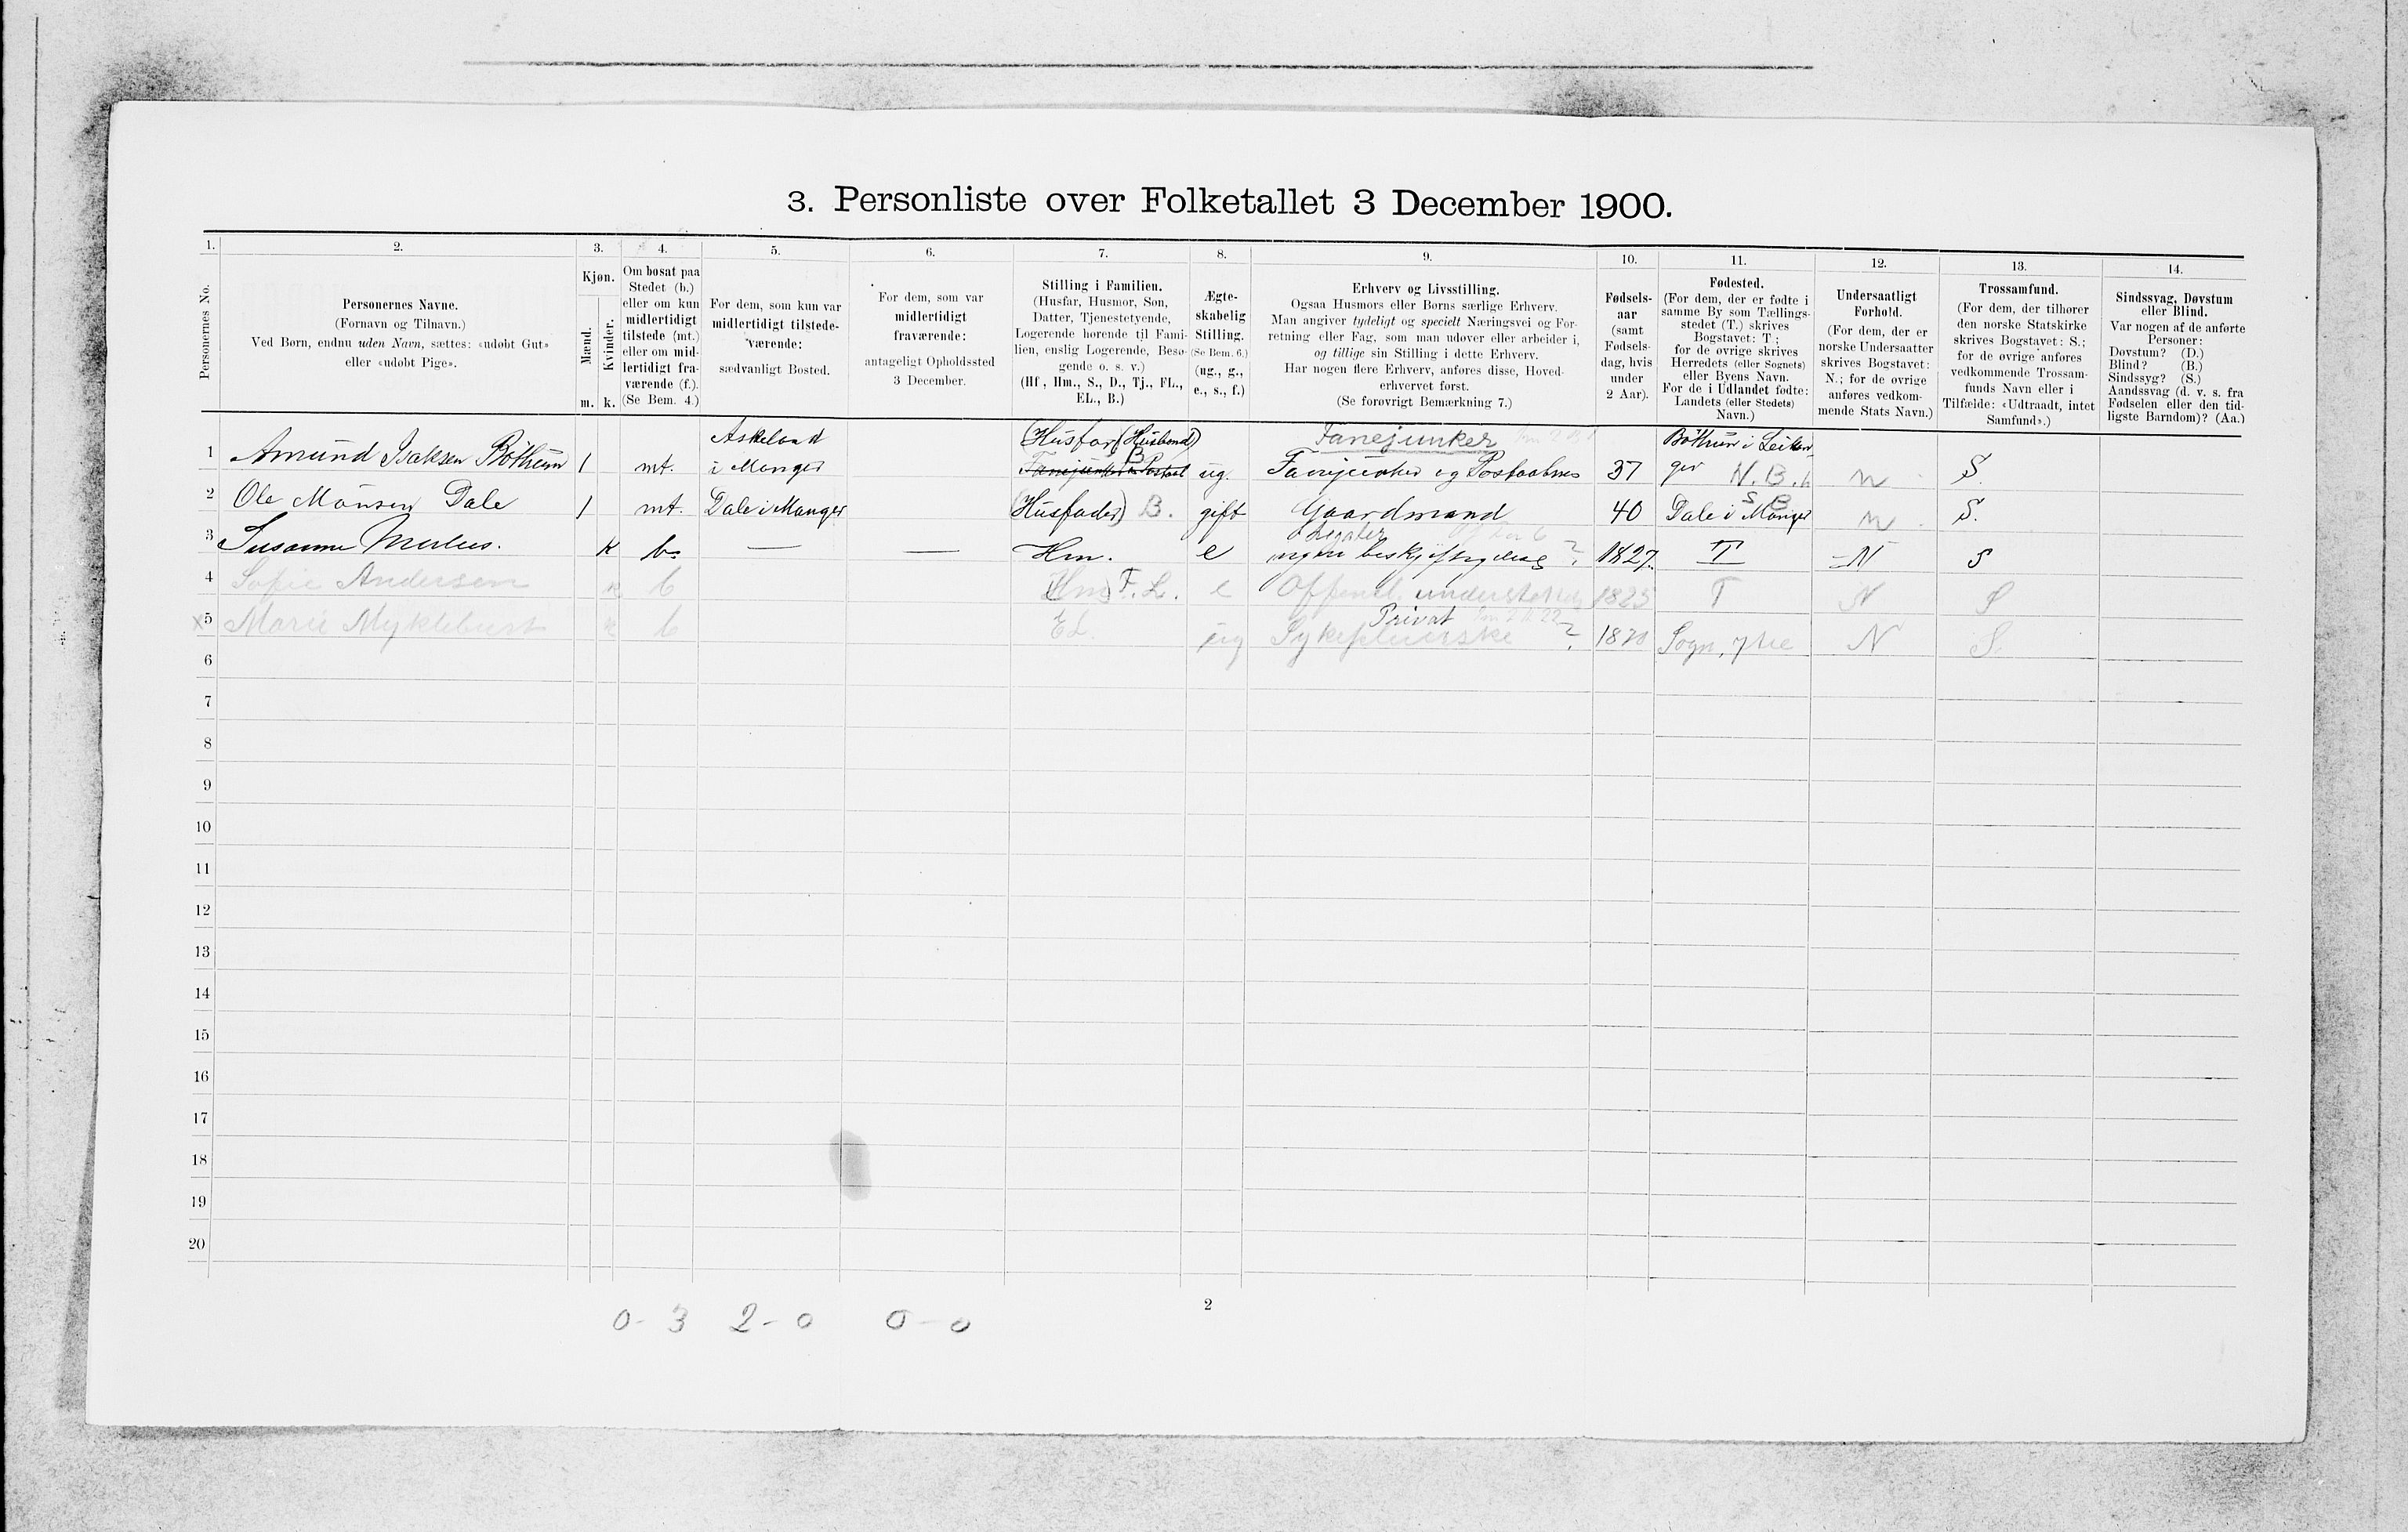 3. Personliste over Folketallet 3 December 1900.
1. 2. 3. 4. 5. 6. 7. 8. 9. 10. 11. 12. 13. 14.
Personernes No.
Personernes Navne.
(Fornavn og Tilnavn.)
Ved Børn, endnu uden Navn, sættes: «udøbt Gut»
eller «udøbt Pige».
Kjøn.
Mænd.
Kvinder.
m. k.
Om bosat paa
Stedet (b.)
eller om kun
midlertidigt
tilstede (mt.)
eller om mid-
lertidigt fra-
værende (f.).
(Se Bem. 4.)
For dem, som kun var
midlertidigt tilstede-
værende:
sædvanligt Bosted.
For dem, som var
midlertidigt
fraværende:
antageligt Opholdssted
3 December.
Stilling i Familien.
(Husfar, Husmor, Søn,
Datter, Tjenestetyende,
Logerende hørende til Fami-
lien, enslig Logerende, Besø-
gende o. s. v.)
(Hf., Hm., S., D., Tj., FL.,
EL., B.)
Ægte-
skabelig
Stilling.
(Se Bem. 6.)
(ug., g.,
e., s., f.)
Erhverv og Livsstilling.
Ogsaa Husmors eller Børns særlige Erhverv.
Man angiver tydeligt og specielt Næringsvei og For-
retning eller Fag, som man udøver eller arbeider i,
og tillige sin Stilling i dette Erhverv.
Har nogen flere Erhverv, anføres disse, Hoved-
erhvervet først.
(Se forøvrigt Bemærkning 7.)
Fødsels-
aar
(samt
Fødsels-
dag, hvis
under
2 Aar).
Fødested.
(For dem, der er fødte i
samme By som Tællings-
stedet (T.) skrives
Bogstavet: T;
for de øvrige skrives
Herredets (eller Sognets)
eller Byens Navn.
For de i Udlandet fødte:
Landets (eller Stedets)
Navn.)
Undersaatligt
Forhold.
(For dem, der er
norske Undersaatter
skrives Bogstavet:
N.; for de øvrige
anføres vedkom-
mende Stats Navn.)
Trossamfund.
(For dem, der tilhører
den norske Statskirke
skrives Bogstavet: S.;
for de øvrige anføres
vedkommende Trossam-
funds Navn eller i
Tilfælde: «Udtraadt, intet
Samfund».)
Sindssvag, Døvstum
eller Blind.
Var nogen af de anførte
Personer:
Døvstum? (D.)
Blind? (B.)
Sindssyg? (S.)
Aandssvag (d. v. s. fra
Fødselen eller den tid-
ligste Barndom)? (Aa.)
Askeland (Husfar (Husbond) Fanejunker Böthun i Leikan-
1 Amund Isaksen Böthun 1 mt. i Manger B ug. Fanejunker og Postaabner 37 ger N.B. n S.
2 Ole Monsen Dale 1 mt. Dale i Manger (Husfader) B. gift Gaardmand 40 Dale i Manger S B n S.
Legater
3 Susanne k b. — — Hm. e ingen ? 1827. T N S
4 Sofie Andersen k b Hm F.L. e Offentl. 1825 T N S
Privat
x 5 Marie Myklebust k b EL. ug Sykepleierske ? 1870 Sogn, ytre N S.
6
7
8
9
10
11
12
13
14
15
16
17
18
19
20
2
0-3 2-0 0-0